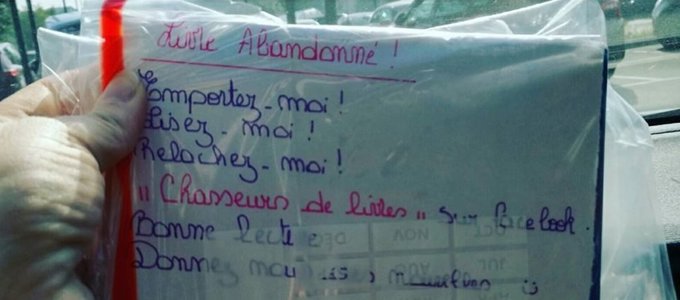 Livre Abandonné !
Emportez-moi !
Lisez-moi !
Relachez-moi !
"Chasseurs de livres" sur facebook.
Bonne
Donnez moi